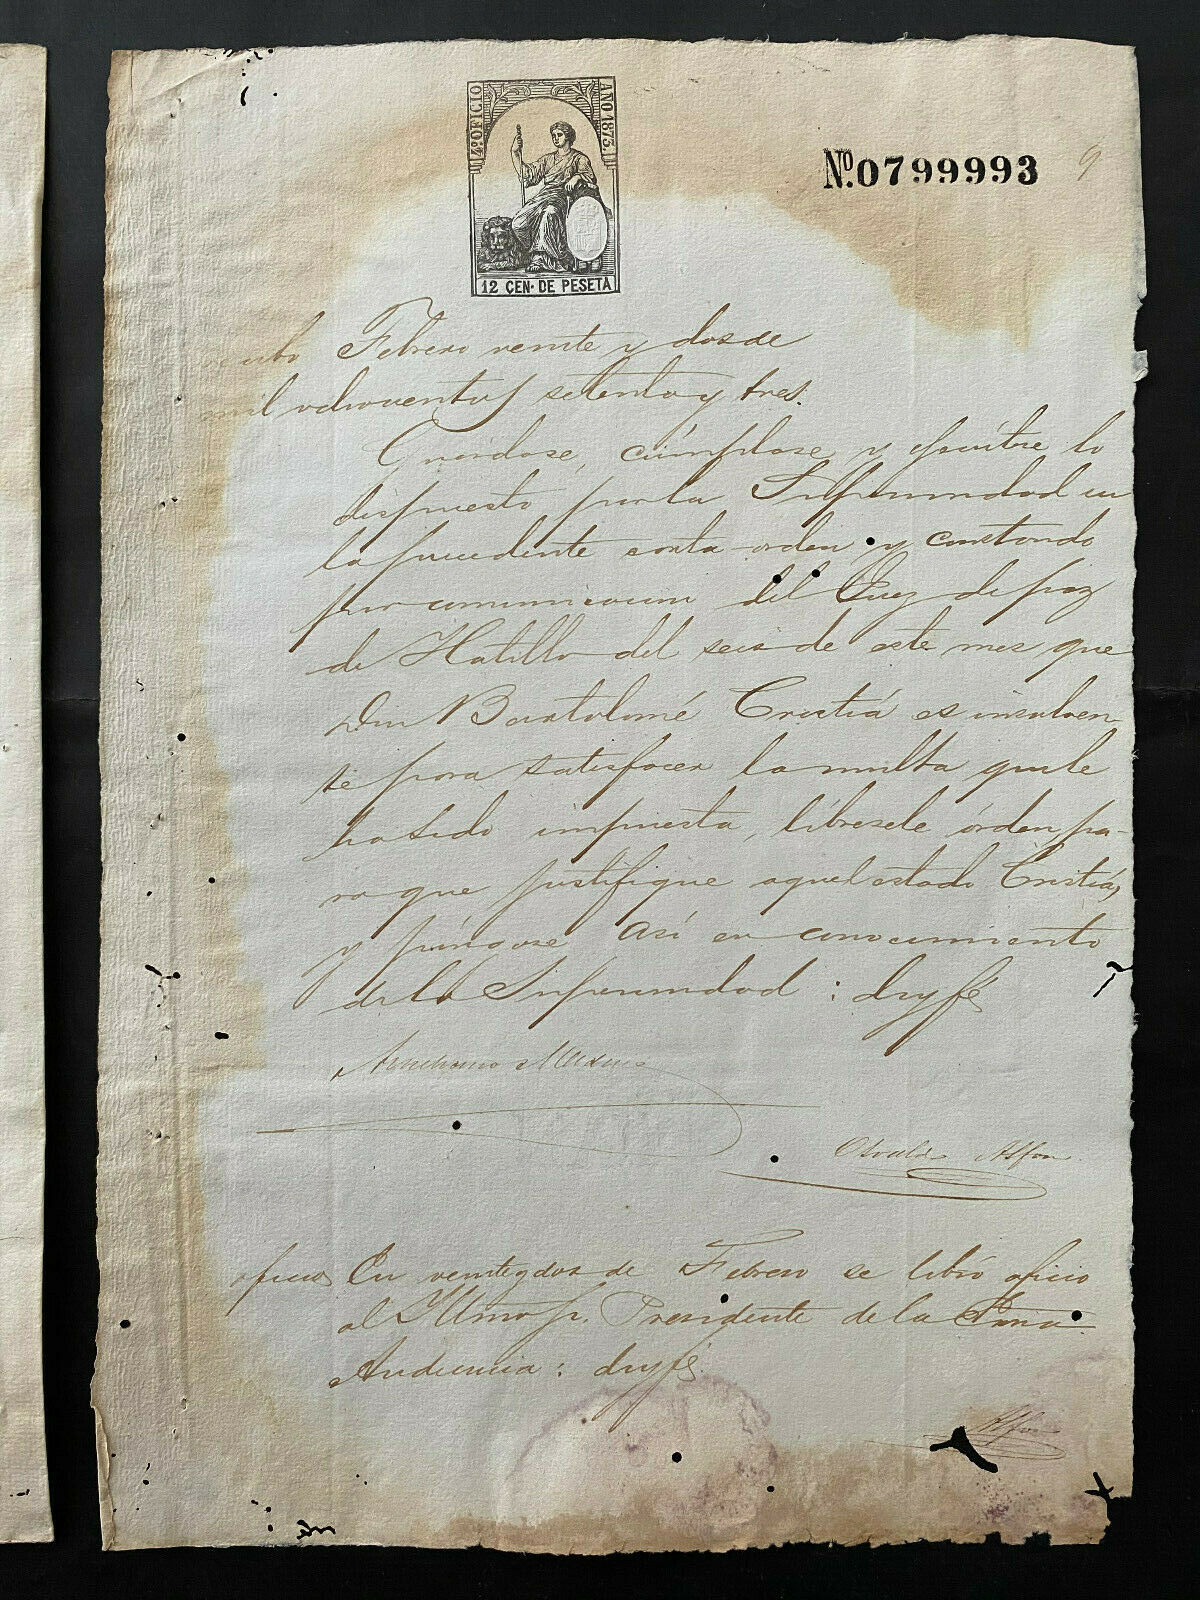 4º OFICIO
AÑO 1873.
12 CEN. DE PESETA
Nº. 0799993
9
Febrero veinte y dos de
mil ochocientos setenta y tres.
Guárdase, cúmplase y ejecútese lo
dispuesto por la Superioridad en
la precedente carta-orden y constando
por comunicacion del Juez de paz
de Hatillo del seis de este mes que
Don Bartolomé Cristiá es insolven-
te para satisfacer la multa que le
ha sido impuesta, líbresele órden pa-
ra que justifique aquel estado Cristiá,
y póngase así en conocimiento
de la Superioridad : doy fé
Osvaldo Alfon
oficio En veinte y dos de Febrero se libró oficio
al Yltmo Sr. Presidente de la
Audiencia : doy fé.